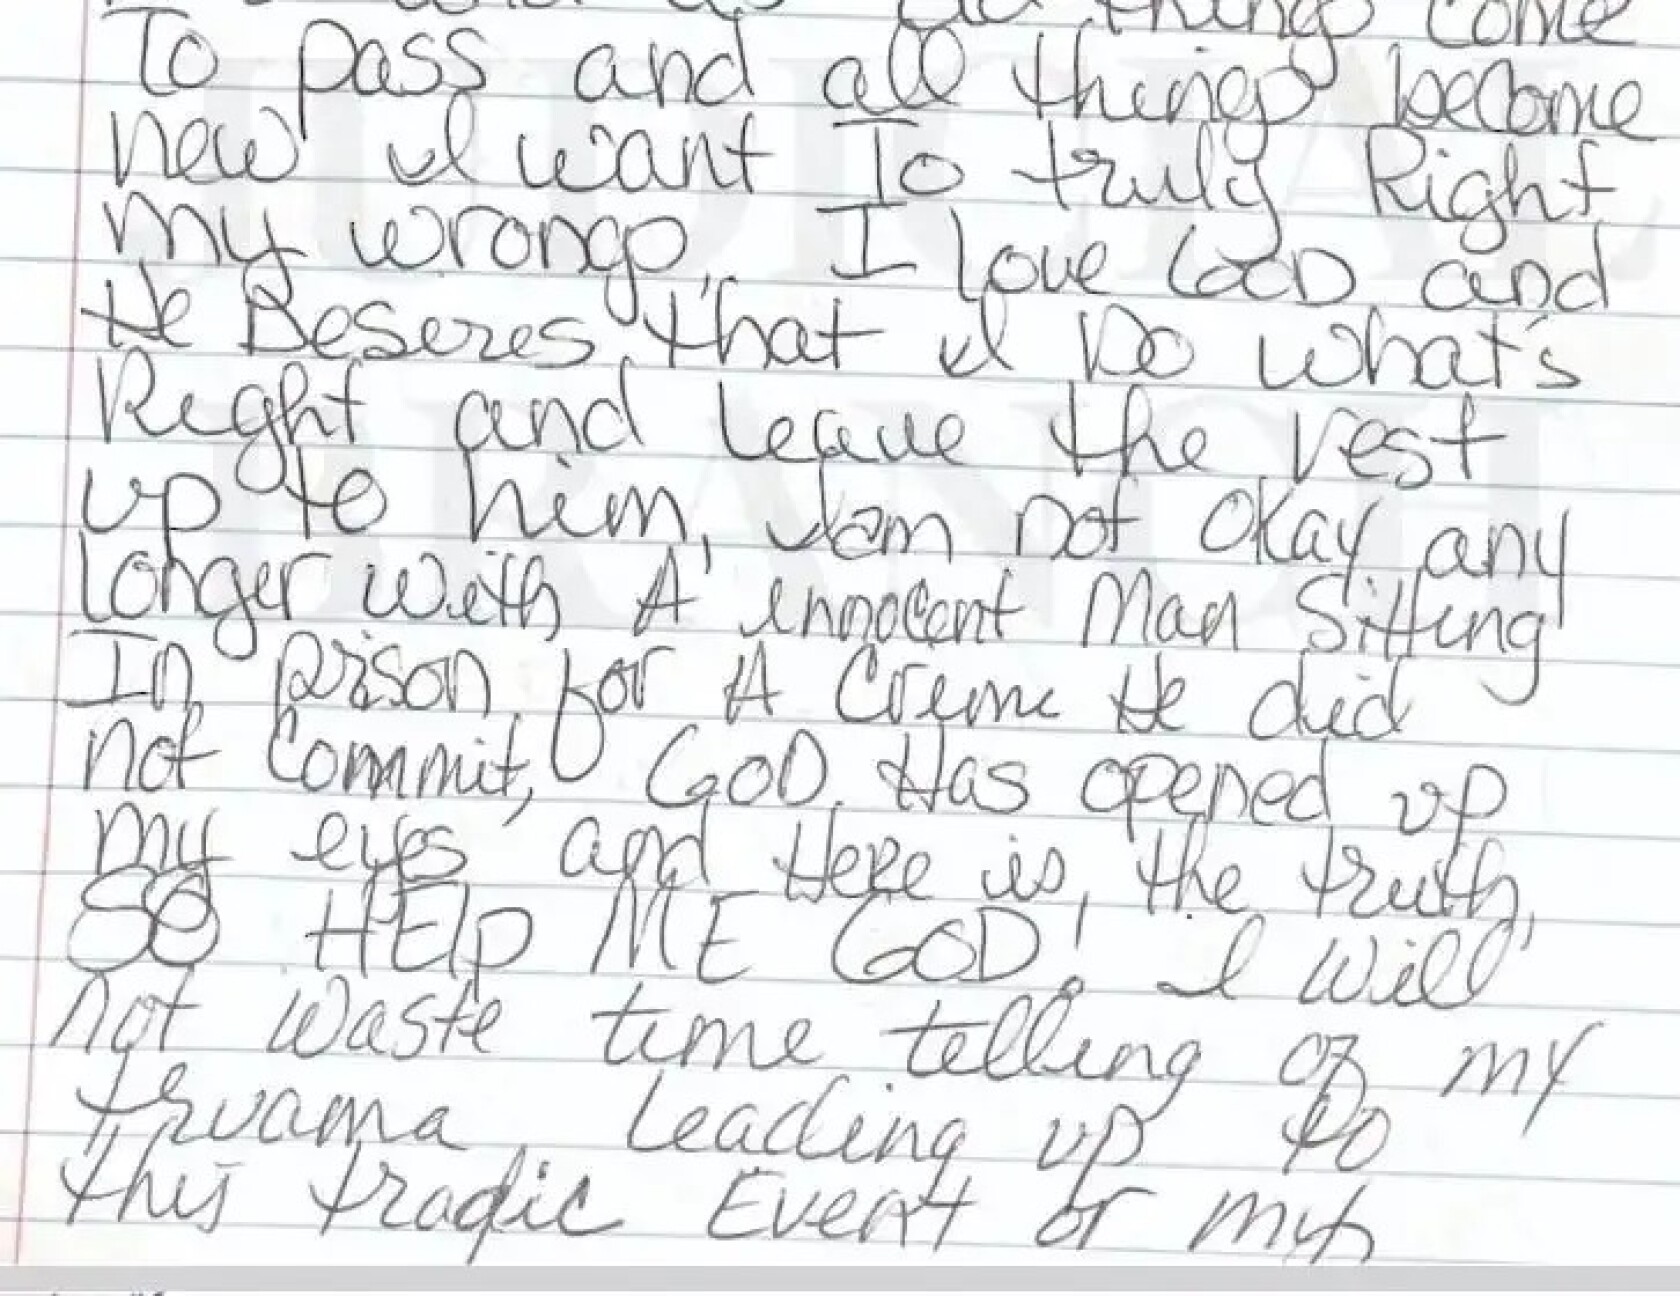 things come
To pass and all things become
new I want To truly Right
my wrongs, I love GOD and
He Deseres that I Do what's
Right and leave the rest
up to him, I am not okay any
longer with A innocent Man Sitting
In prison for A Crime He did
not Commit, GOD Has opened up
my eyes and Here is, the truth,
SO HELP ME GOD! I will
not waste time telling of my
truama leading up to
this tragic Event or my
JUDICIAL
BRANCH